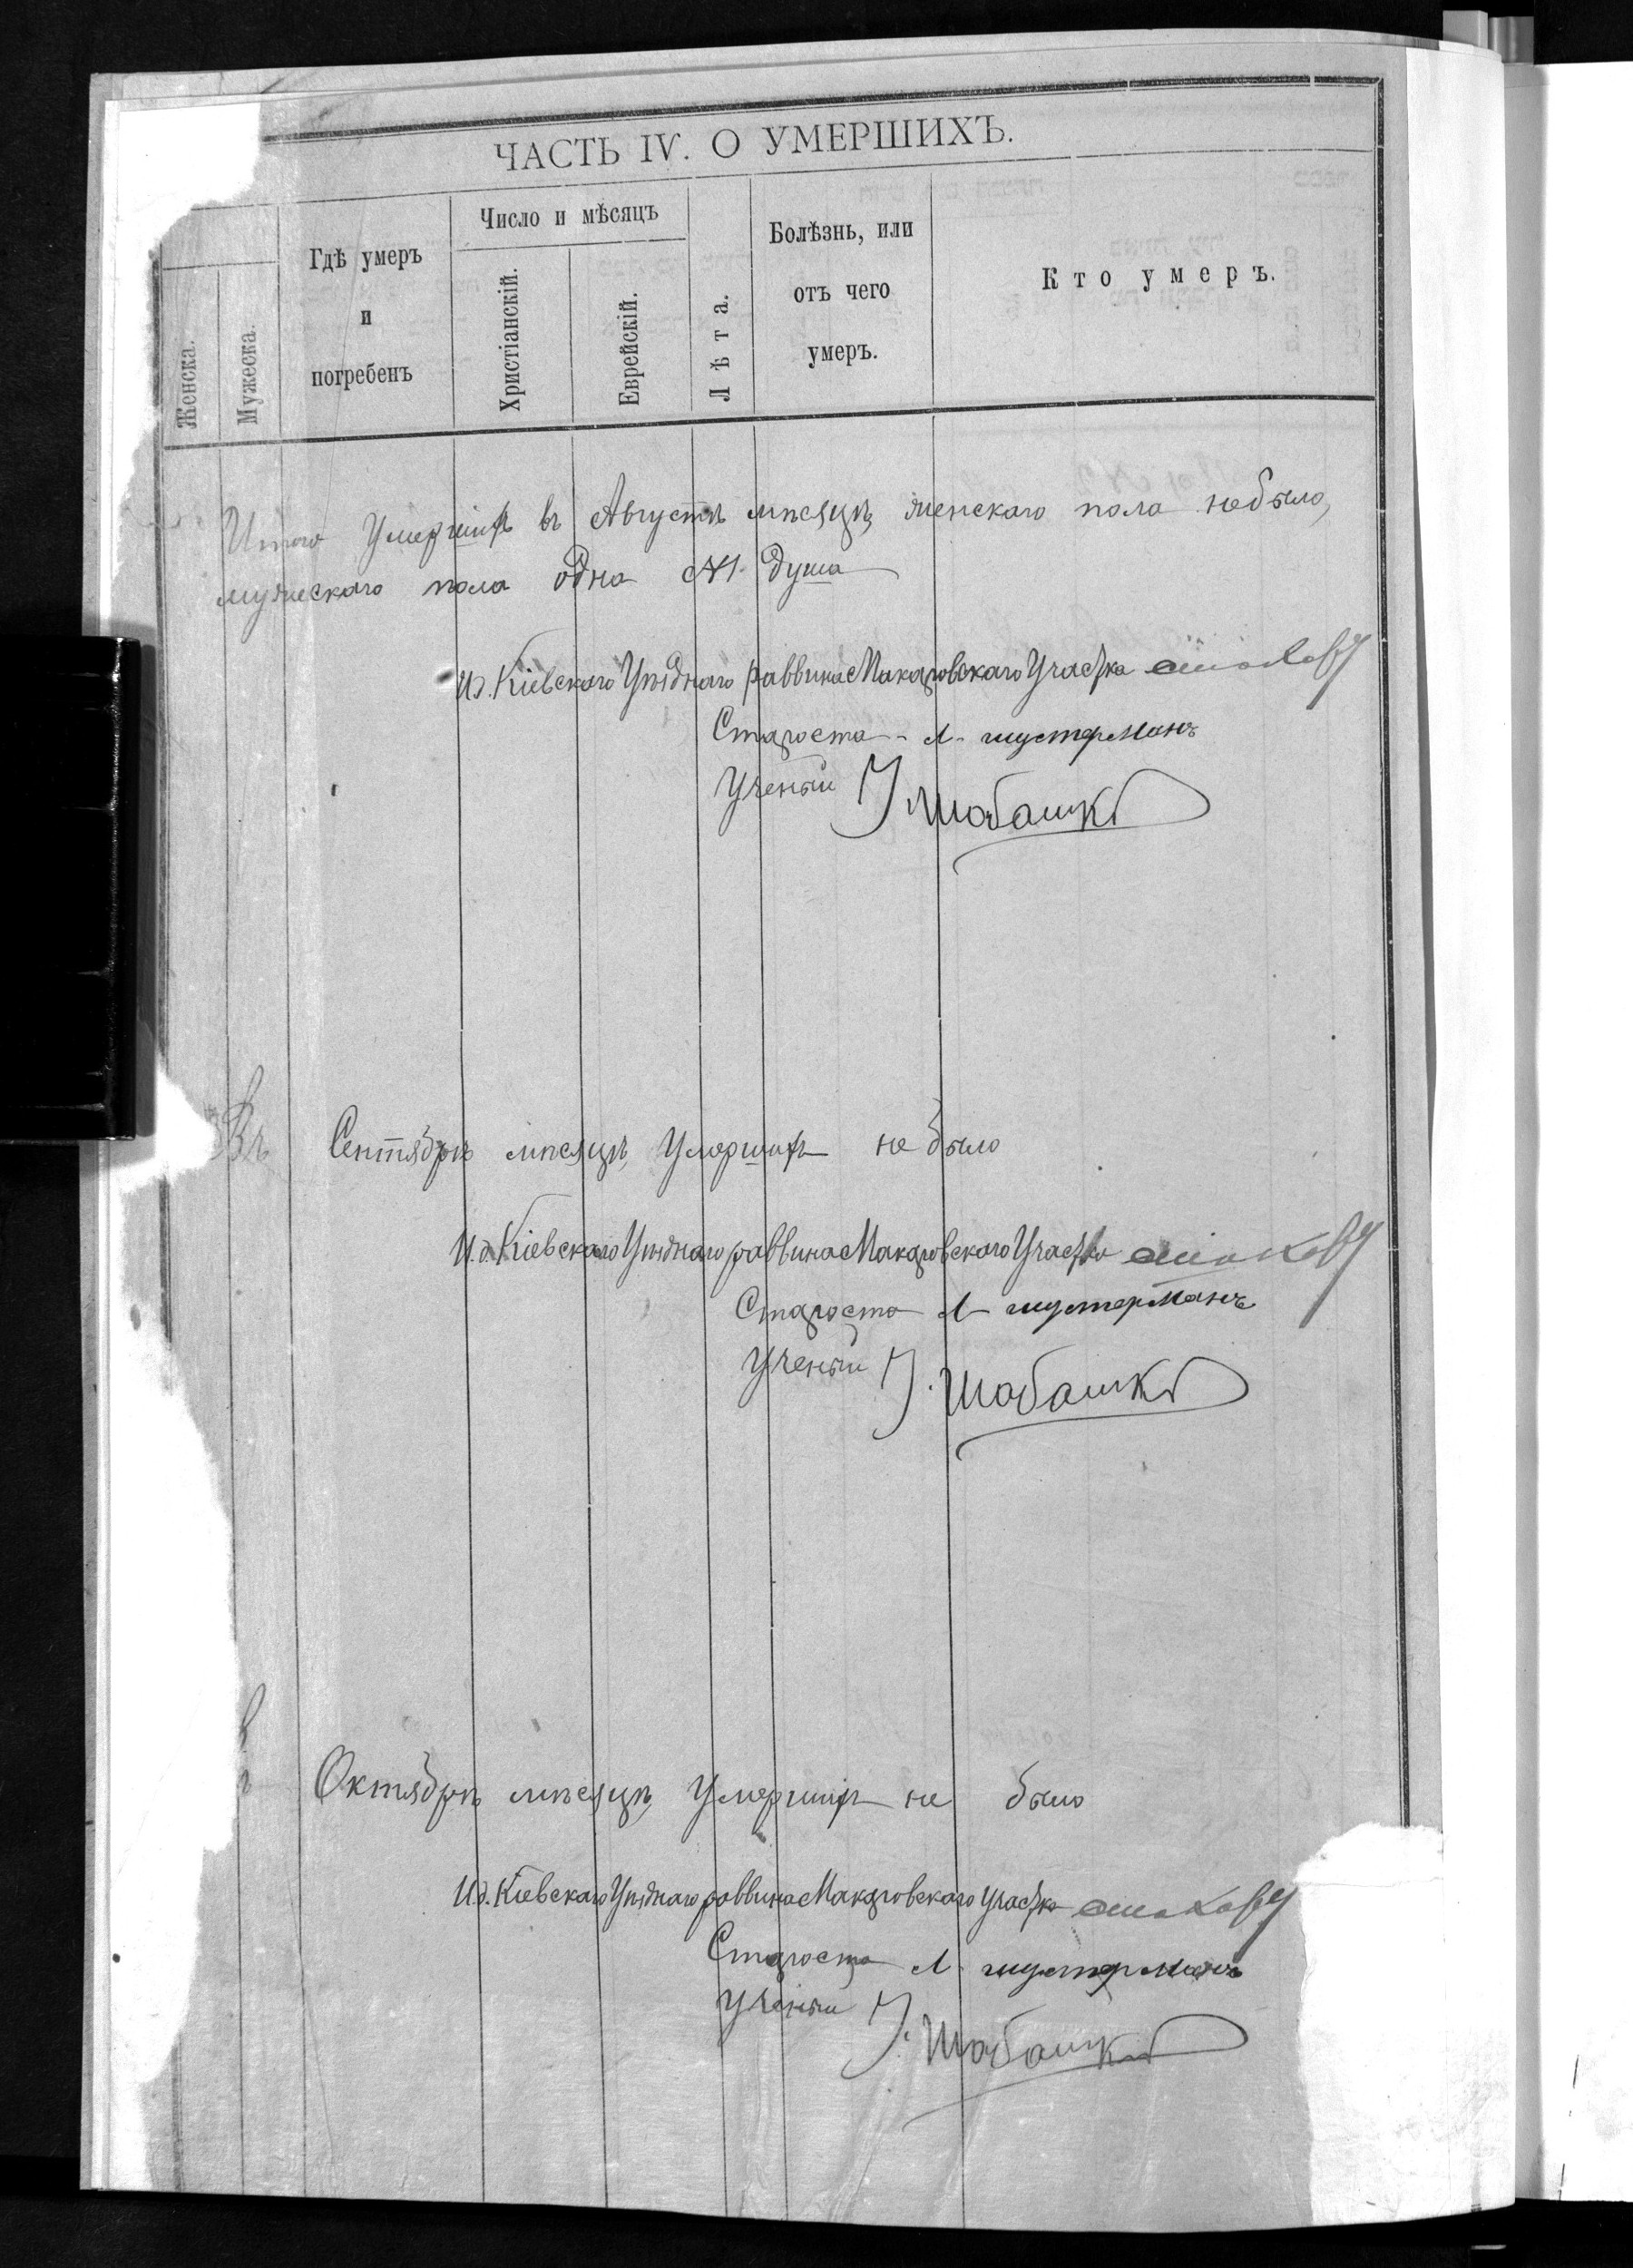 ЧАСТЬ IV. О УМЕРШИХЪ.
Женска.
Мужеска.
Гдѣ умеръ
и
погребенъ
Число и мѣсяцъ
Христіанскій.
Еврейскій.
Лѣта.
Болѣзнь, или
отъ чего
умеръ.
Кто умеръ.
Итого Умершихъ въ Августѣ мѣсяцѣ женскаго пола небыло,
мужескаго пола одна №1 душа
И.д. Кіевскаго Уѣзднаго раввина Макаровскаго Участка
Староста Л. шустерманъ
Ученый
Въ Сентябрѣ мѣсяцѣ Умершихъ не было
И.д. Кіевскаго Уѣзднаго раввина Макаровскаго Участка
Староста Л шустерманъ
Ученый
Октябрѣ мѣсяцѣ Умершихъ не было
И.д. Кіевскаго Уѣзднаго раввина Макаровскаго Участка
Староста Л. шустерманъ
Ученый